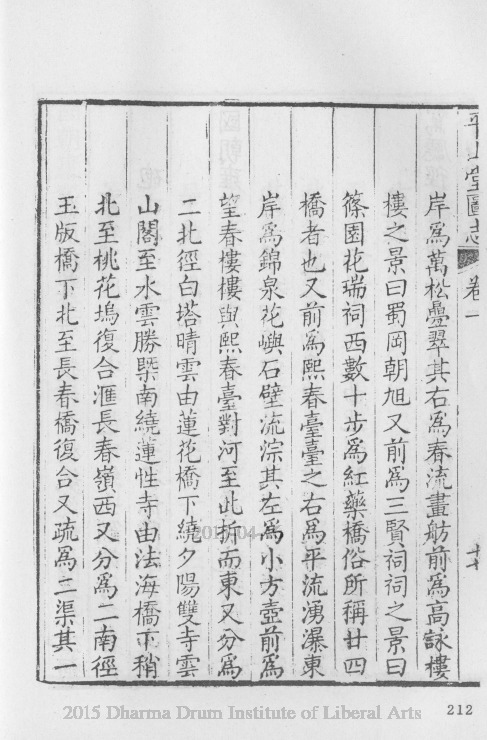 平山堂圖志 卷一
十七
岸爲萬松疊翠其右爲春流畫舫前爲高詠樓
樓之景曰蜀岡朝旭又前爲三賢祠祠之景曰
篠園花瑞祠西數十步爲紅藥橋俗所稱廿四
橋者也又前爲熙春臺臺之右爲平流湧瀑東
岸爲錦泉花嶼石壁流淙其左爲小方壺前爲
望春樓樓與熙春臺對河至此折而東又分爲
二北徑白塔晴雲由蓮花橋下繞夕陽雙寺雲
山閣至水雲勝槩南繞蓮性寺由法海橋下稍
北至桃花塢復合滙長春嶺西又分爲二南徑
玉版橋下北至長春橋復合又疏爲二渠其一
2015 Dharma Drum Institute of Liberal Arts
212